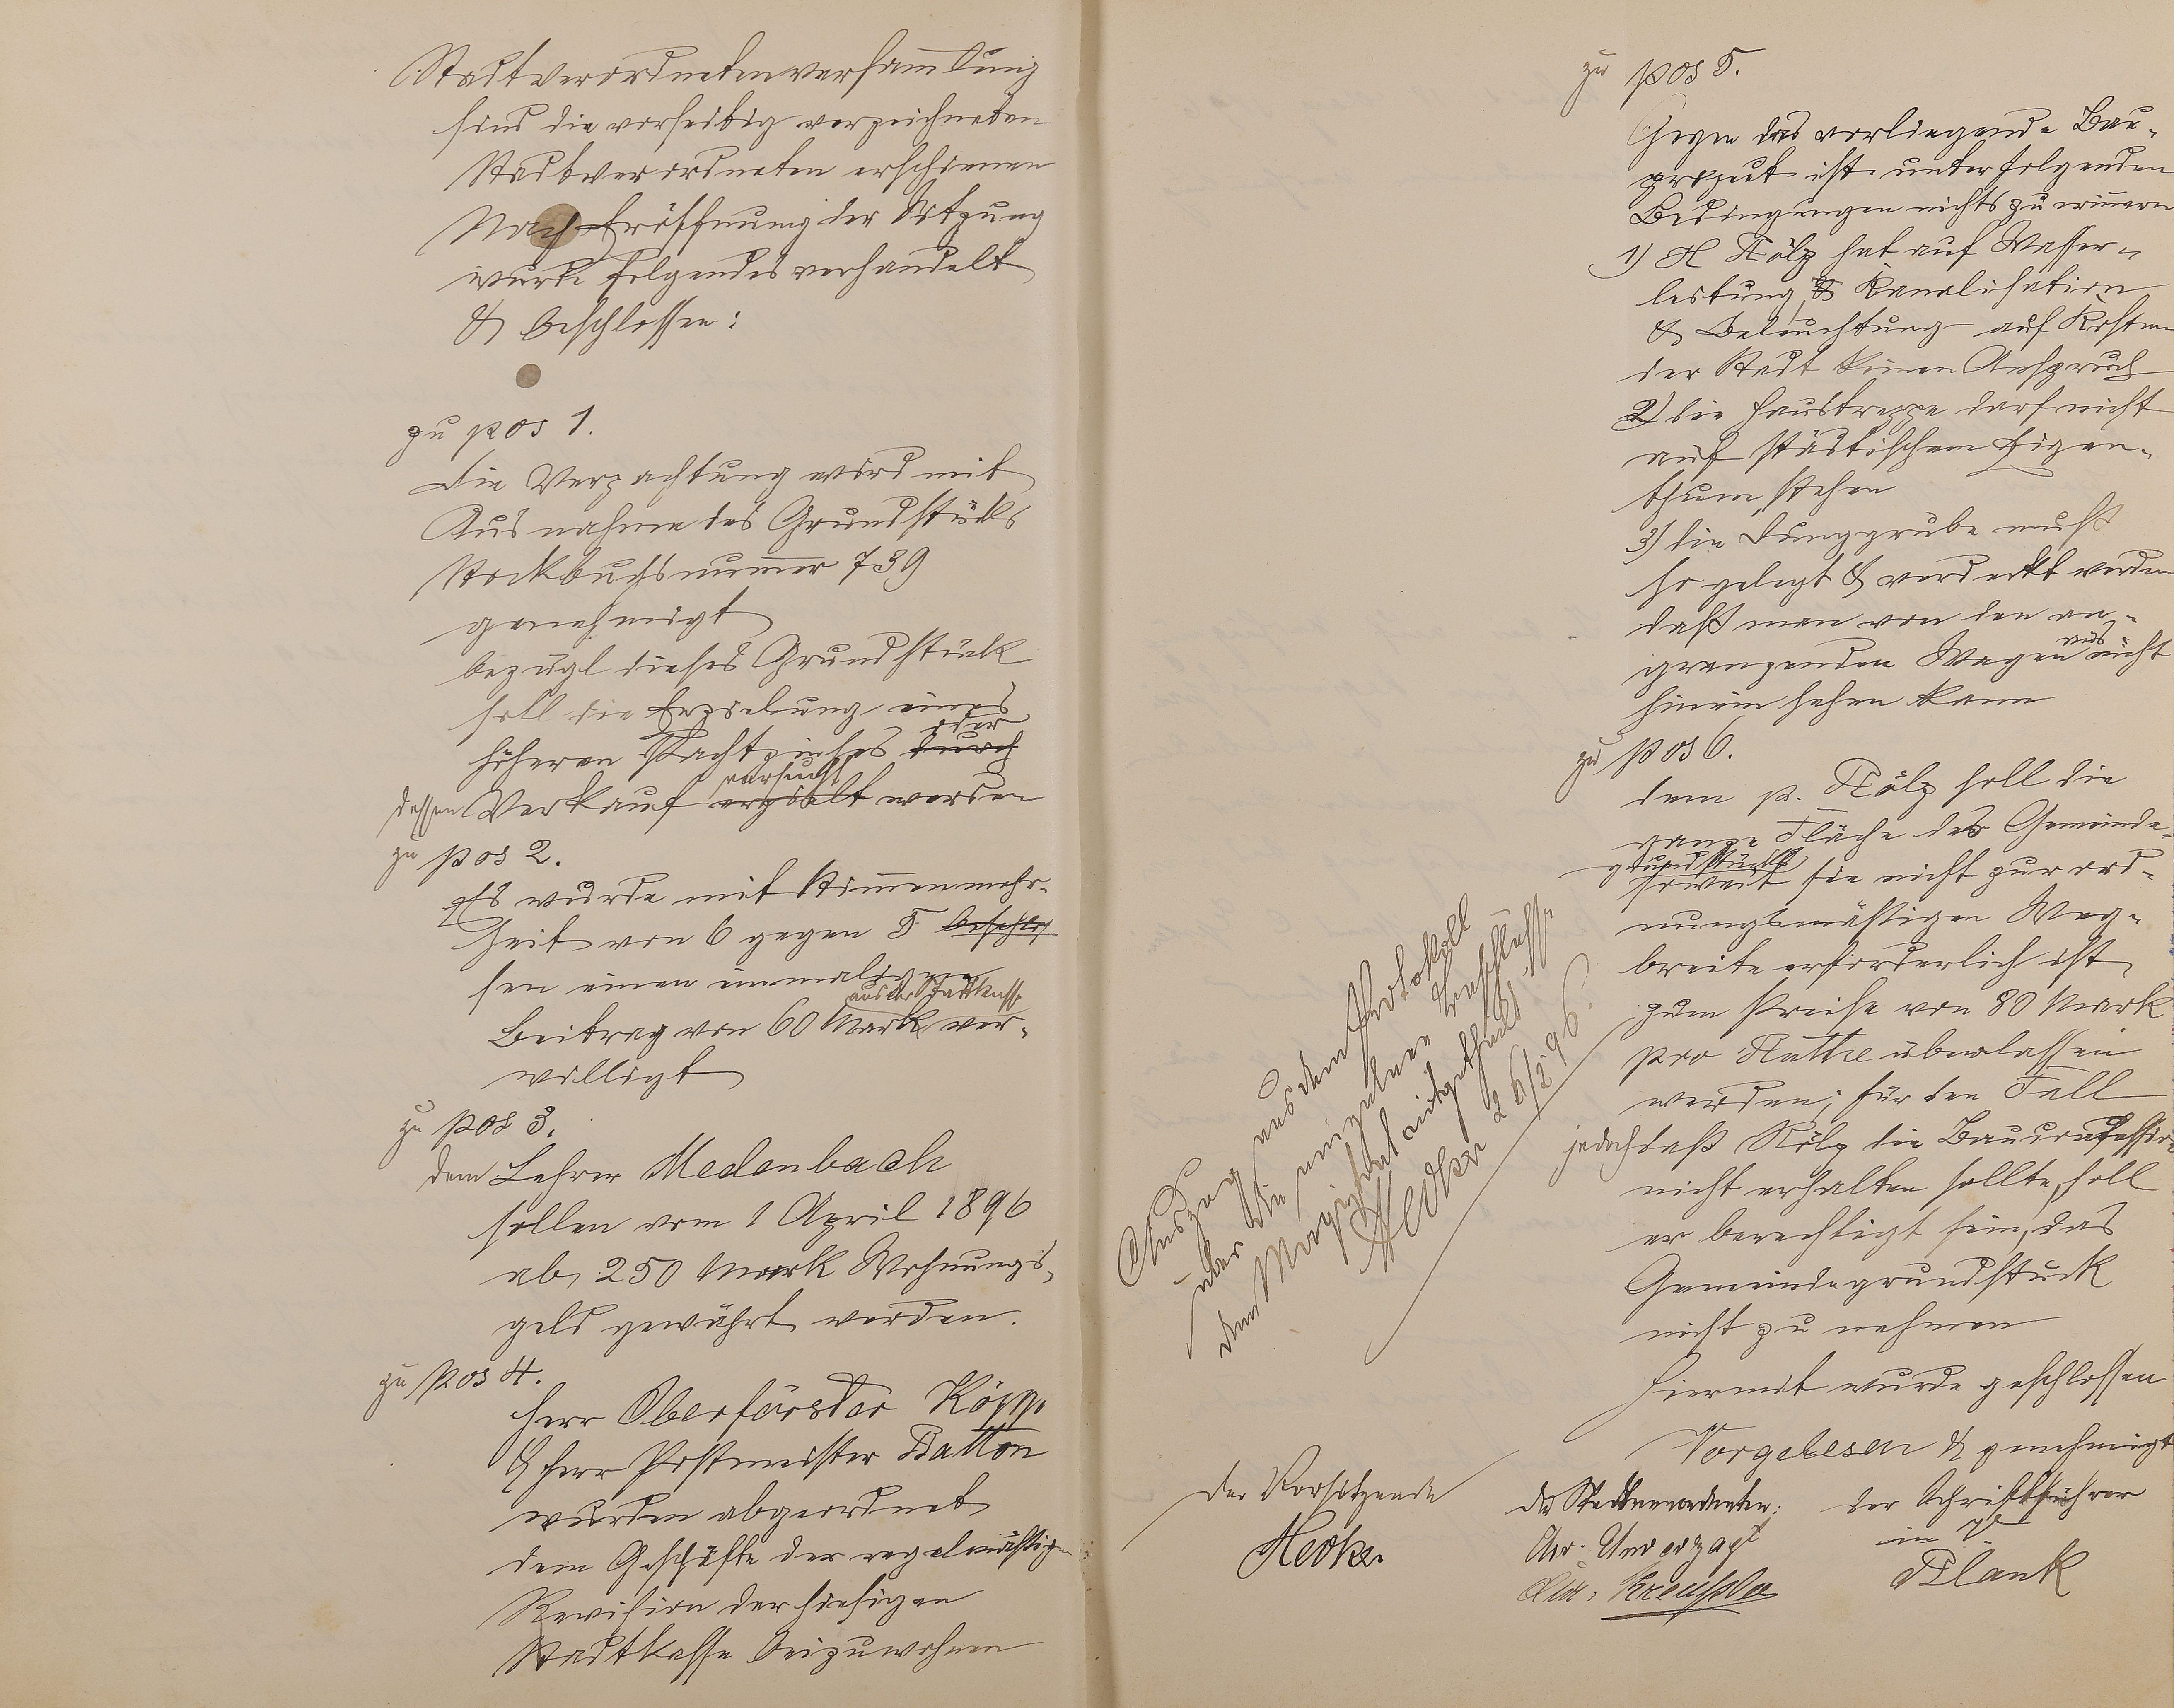 Stadtverordnetenversam̅lung
sind die vorseitig verzeichneten
Stadtverordneten erschienen
Nach Eröffnung der Sitzung
wurde folgendes verhandelt
& beschlossen:
zu pos 1.
Die Verpachtung wird mit
Ausnahme des Grundstücks
Stockbuchsnum̅er 739
genehmigt
bezügl dieses Grundstück
soll die Erzielung eines
höheren Pachtzinses durch oder
dessen Verkauf erzielt versucht werden
zu pos 2.
Es wurde mit Stim̅enmehr-
heit von 6 gegen 5 beschlos
sen einen einmaligen
Beitrag von 60 Mark aus der Stadtkasse ver-
willigt
zu pos 3.
dem Lehrer Medenbach
sollen vom 1 April 1896
ab 250 Mark Wohnungs-
geld gewährt werden.
zu pos 4.
Herr Oberförster Köpp
& Herr Postmeister Batton
wurden abgeordnet
dem Geschäfte der regelmäßigen
Revision der hiesigen
Stadtkasse beizuwohnen
zu pos 5.
Gegen das vorliegende Bau-
projeut ist unter folgenden
Bedingungen nichts zu erin̅ern
1) H Rölz hat auf Wasser-
leitung, & Kanalisation
& Beleuchtung auf Kosten
der Stadt keinen Anspruch
2) die Haustreppe darf nicht
auf städtischem Eigen-
thum stehen
3) die Dunggrube muß
so gelegt & verdeckt werden
daß man von den an-
grenzenden Wegen aus nicht
hinein sehen kann
zu pos 6.
dem p. Rölz soll die
ganze Fläche des Gemeinde-
grundstücks
soweit sie nicht zur ord-
nungsmäßigen Weg-
breite erforderlich ist
zum Preise von 80 Mark
pro Ruthe überlassen
werden; für den Fall
jedoch daß Rölz die Bauconcession
nicht erhalten sollte, soll
er berechtigt sein, das
Gemeindegrundstück
nicht zu nehmen
Hiermit wurde geschlossen
Vorgelesen & genehmigt
Auszug aus dem Protokoll
über die einzelnen Beschlüsse
dem Magistrat mitgetheilt
Hecker 26/2.96.
Der Vorsitzende
Hecker
die Stadtverordneten:
Chr. Unverzagt
der Schriftführer
in V.
Plank